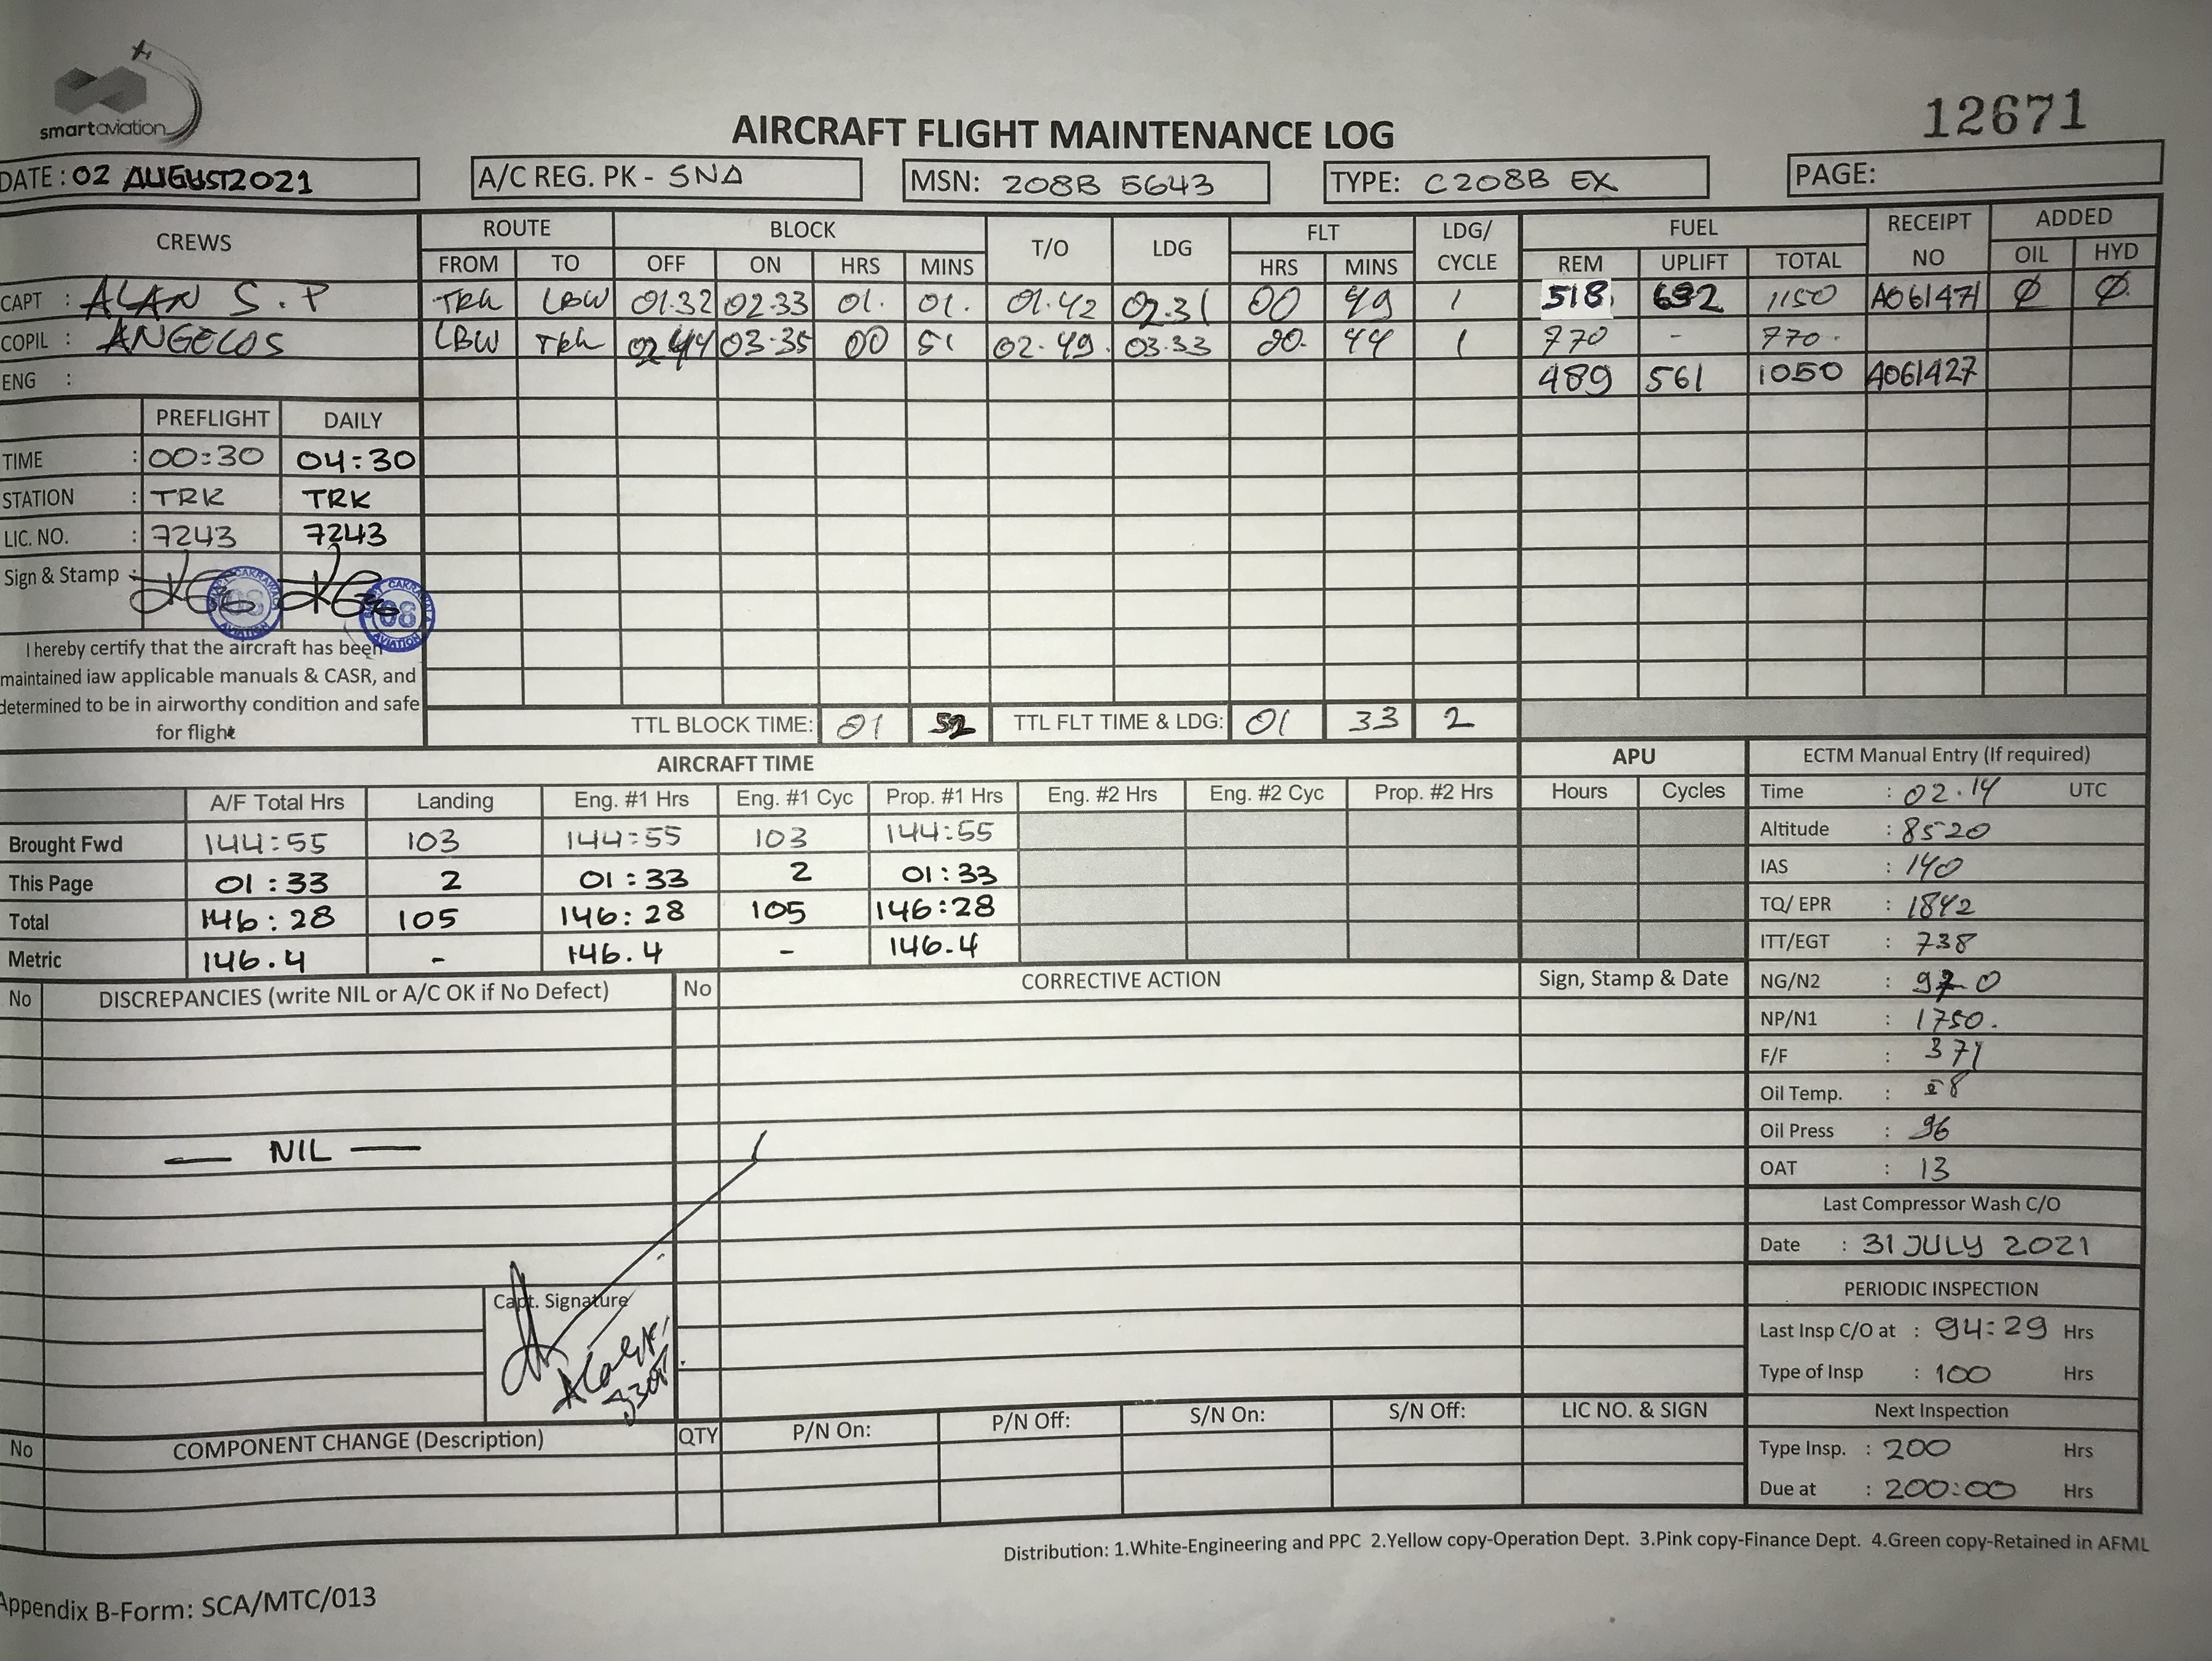 smartaviation
12671
AIRCRAFT FLIGHT MAINTENANCE LOG
DATE : 02 AUGUST 2021 A/C REG. PK - SNA MSN: 208B 5643 TYPE: C208B EX PAGE:
CREWS ROUTE BLOCK T/O LDG FLT LDG/ CYCLE FUEL RECEIPT NO ADDED
FROM TO OFF ON HRS MINS HRS MINS REM UPLIFT TOTAL OIL HYD
CAPT : ALAN S.P TRK LBW 01.32 02.33 01. 01. 01.42 02.31 00 49 1 518 632 1150 A061471 Ø Ø
COPIL : ANGELOS LBW TRK 02 44 03.35 00 51 02.49. 03.33 00. 44 1 770 - 770.
ENG : 489 561 1050 A061427
PREFLIGHT DAILY
TIME : 00:30 04:30
STATION : TRK TRK
LIC. NO. : 7243 7243
Sign & Stamp :
CAKRAWALA AVIATION 08
CAKRAWALA AVIATION 08
I hereby certify that the aircraft has been
maintained iaw applicable manuals & CASR, and
determined to be in airworthy condition and safe
for flight
TTL BLOCK TIME: 01 52 TTL FLT TIME & LDG: 01 33 2
AIRCRAFT TIME APU
A/F Total Hrs Landing Eng. #1 Hrs Eng. #1 Cyc Prop. #1 Hrs Eng. #2 Hrs Eng. #2 Cyc Prop. #2 Hrs Hours Cycles
Brought Fwd 144:55 103 144:55 103 144:55
This Page 01:33 2 01:33 2 01:33
Total 146:28 105 146:28 105 146:28
Metric 146.4 - 146.4 - 146.4
ECTM Manual Entry (If required)
Time : 02.14 UTC
Altitude : 8520
IAS : 140
TQ/ EPR : 1842
ITT/EGT : 738
NG/N2 :
NP/N1 : 1750.
F/F : 371
Oil Temp. :
Oil Press : 96
OAT : 13
Last Compressor Wash C/O
Date : 31 JULY 2021
PERIODIC INSPECTION
Last Insp C/O at : 94:29 Hrs
Type of Insp : 100 Hrs
Next Inspection
Type Insp. : 200 Hrs
Due at : 200:00 Hrs
No DISCREPANCIES (write NIL or A/C OK if No Defect) No CORRECTIVE ACTION Sign, Stamp & Date
— NIL —
Capt. Signature
No COMPONENT CHANGE (Description) QTY P/N On: P/N Off: S/N On: S/N Off: LIC NO. & SIGN
Distribution: 1.White-Engineering and PPC 2.Yellow copy-Operation Dept. 3.Pink copy-Finance Dept. 4.Green copy-Retained in AFML
Appendix B-Form: SCA/MTC/013